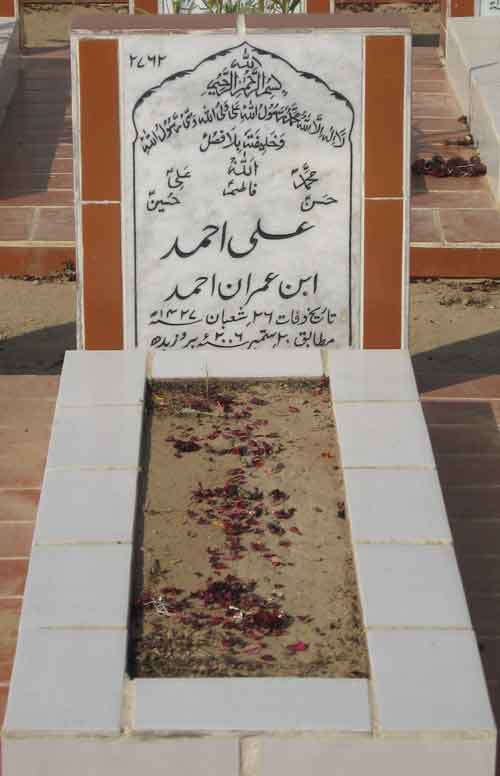 ۲۷۶۲
یا اللہ
بسم اللہ الرحمن الرحیم
لا الہ الا اللہ محمد رسول اللہ علی ولی اللہ وصی رسول اللہ
وخلیفتہ بلا فصل
اللہ
محمدؐ فاطمہؑ علیؑ
حسنؑ حسینؑ
علی احمد
ابن عمران احمد
تاریخ وفات ۲۶ شعبان ۱۴۲۷ھ
مطابق ۲۰ ستمبر ۲۰۰۶ء بروز بدھ